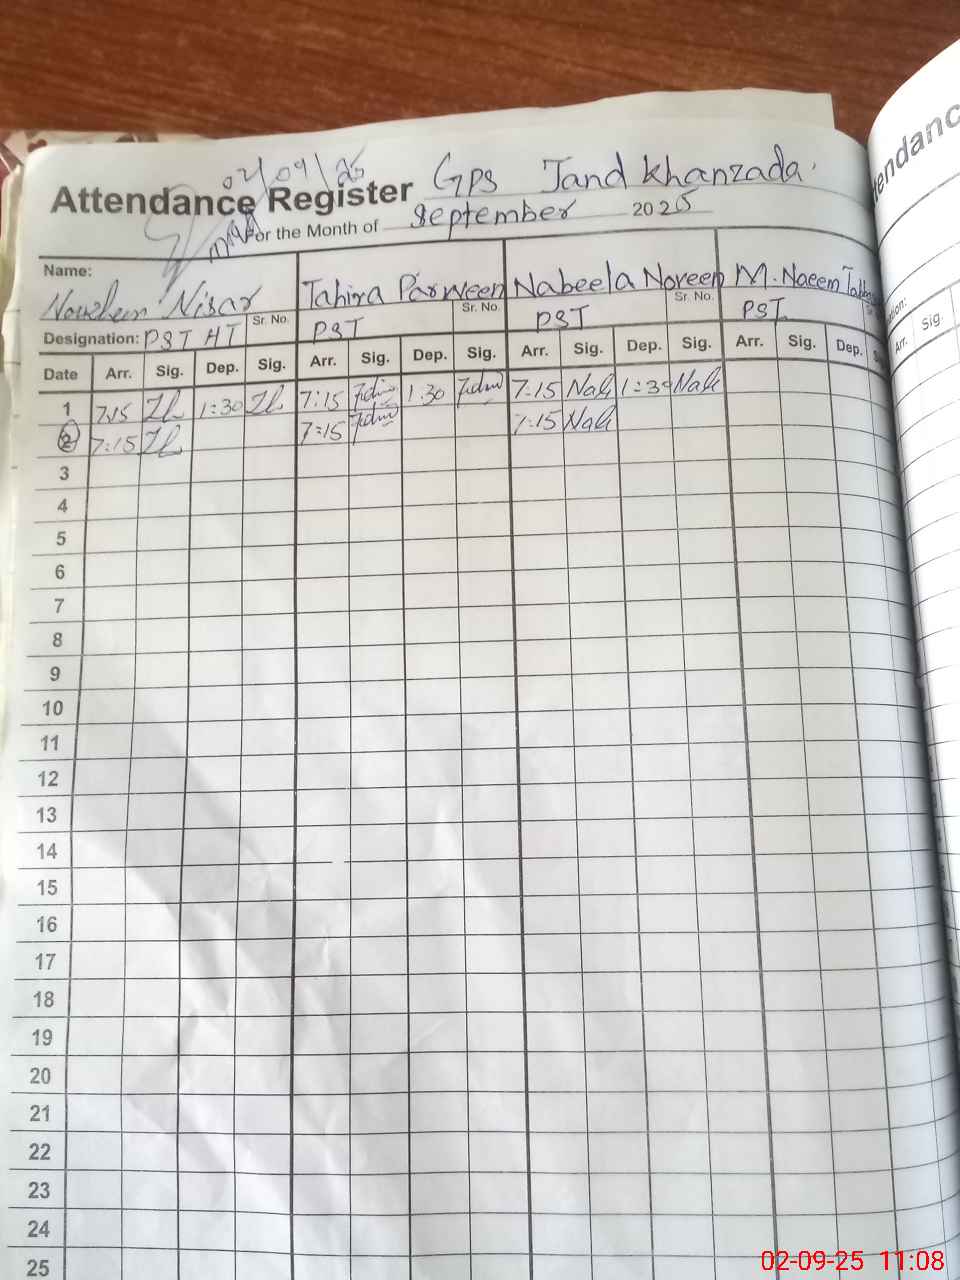 02/09/25
Attendance Register GPS Jand Khanzada
For the Month of September 2025
Name:
Nousheen Nisar Tahira Parween Nabeela Noreen M. Naeem
Designation: PST HT Sr. No. PST Sr. No. PST Sr. No. PST
Date Arr. Sig. Dep. Sig. Arr. Sig. Dep. Sig. Arr. Sig. Dep. Sig. Arr. Sig. Dep.
1 7:15 1:30 7:15 1:30 7:15 Nab 1:30 Nab
2 7:15 7:15 7:15 Nab
3
4
5
6
7
8
9
10
11
12
13
14
15
16
17
18
19
20
21
22
23
24
25
endanc
Arr. Sig.
02-09-25 11:08